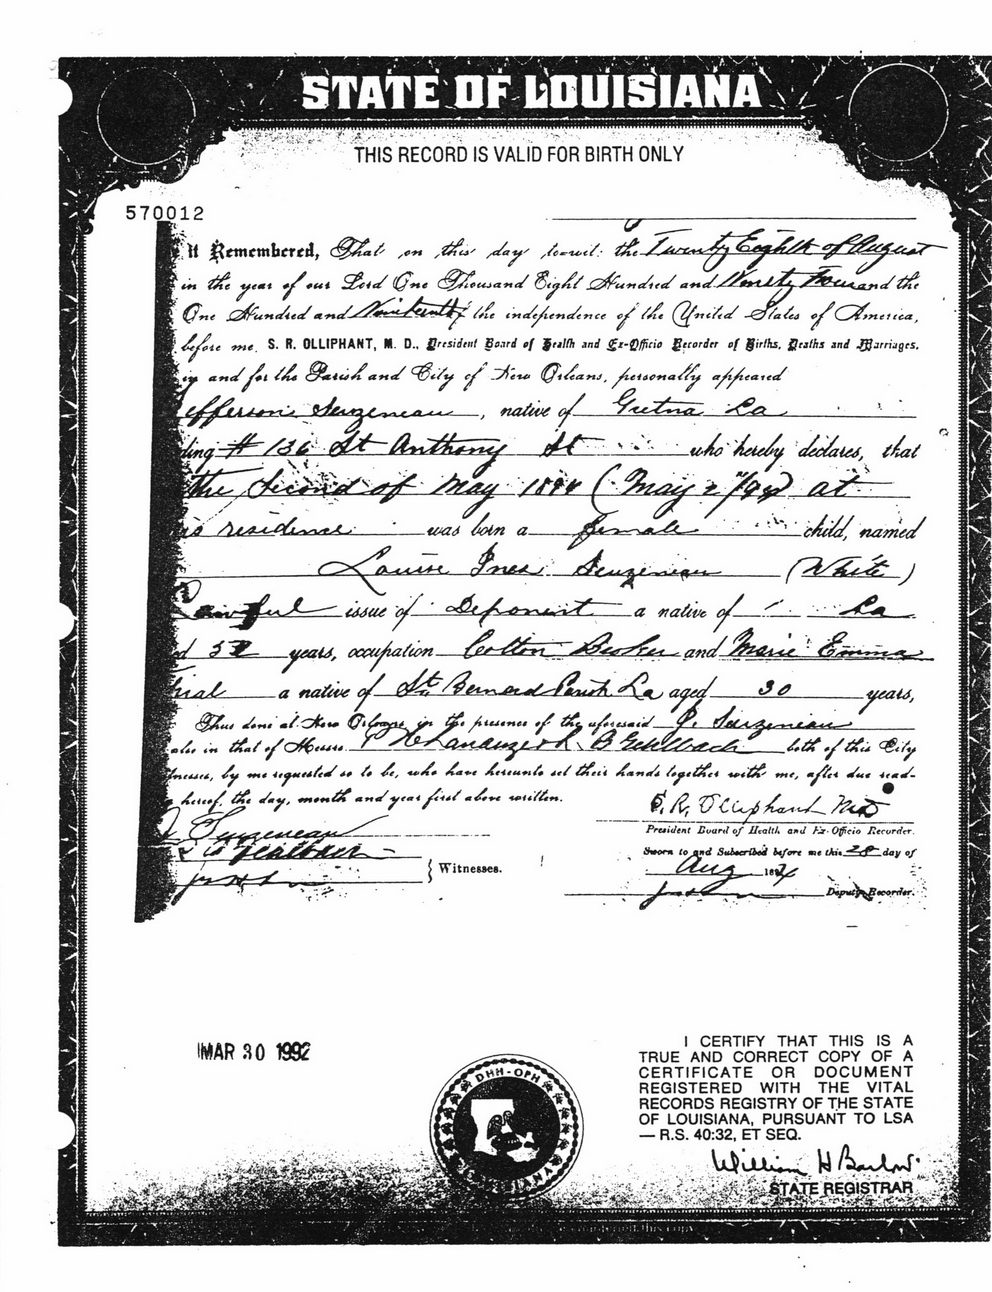 STATE OF LOUISIANA
THIS RECORD IS VALID FOR BIRTH ONLY
570012
it Remembered, That on this day to-wit: the Twenty Eighth of August
in the year of our Lord One Thousand Eight Hundred and Ninety Four and the
One Hundred and Nineteenth the independence of the United States of America,
before me, S. R. OLLIPHANT, M. D., President Board of Health and Ex-Officio Recorder of Births, Deaths and Marriages,
in and for the Parish and City of New Orleans, personally appeared
efferson Seuzeneau, native of Gretna La
ding # 136 St Anthony St who hereby declares, that
the Second of May 1894 (May 2"/94) at
is residence was born a female child, named
Louise Ines Seuzeneau (White)
Lawful issue of Deponent a native of La
d years, occupation Cotton Broker and Marie Emma
a native of St Bernard Parish La aged 30 years,
Thus done at New Orleans, in the presence of the aforesaid J. Seuzeneau
also in that of Messrs. both of this City
tnesses, by me requested so to be, who have hereunto set their hands together with me, after due read-
hereof, the day, month and year first above written.
S. R. Olliphant MD
J. Seuzeneau
President Board of Health and Ex-Officio Recorder.
Sworn to and Subscribed before me this 28 day of
Witnesses.
Aug 1894
Deputy Recorder.
MAR 30 1992
DHH-OPH
LOUISIANA
I CERTIFY THAT THIS IS A
TRUE AND CORRECT COPY OF A
CERTIFICATE OR DOCUMENT
REGISTERED WITH THE VITAL
RECORDS REGISTRY OF THE STATE
OF LOUISIANA, PURSUANT TO LSA
— R.S. 40:32, ET SEQ.
William H Barlow
STATE REGISTRAR